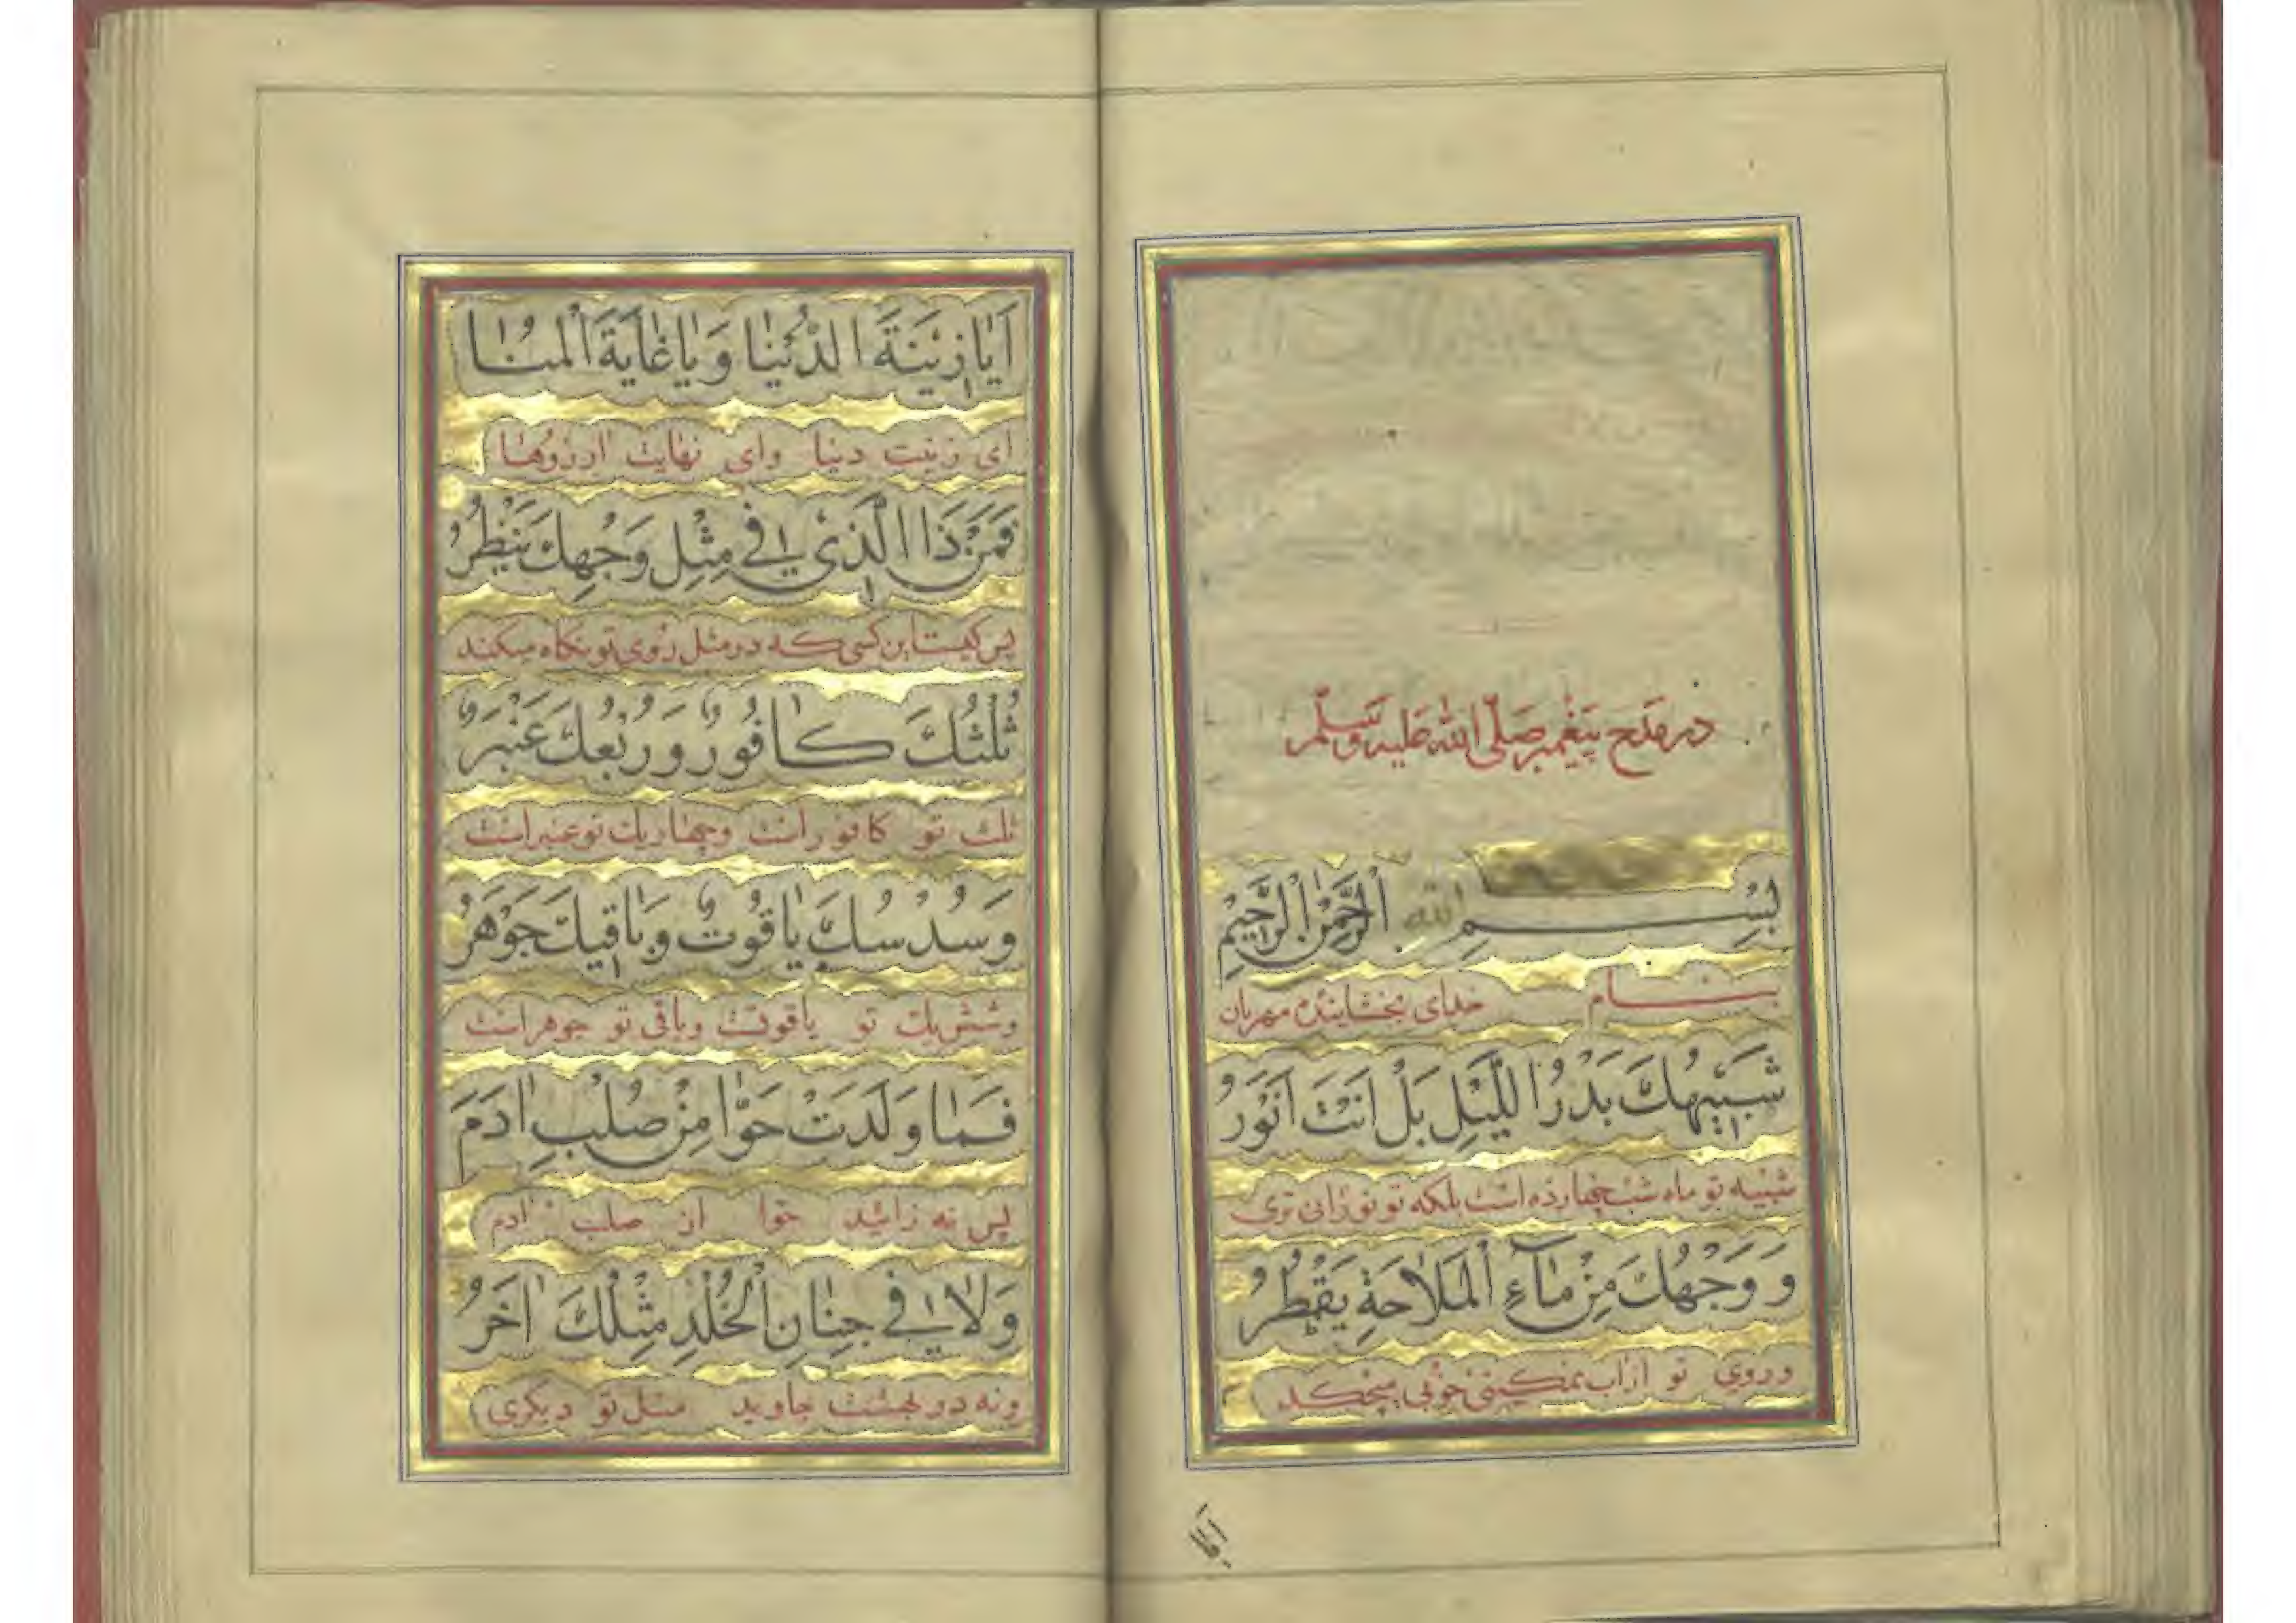 در مَدح پیَغمبر صَلّی الله عَلیه وَسَلّم
بِسْمِ الله الرَّحْمٰنِ الرَّحیٖمِ
بنام خدای بخشاینده مهربان
شَبیٖهُكَ بَدْرُ اللَّیْلِ بَلْ اَنْتَ اَنْوَرُ
شبیه تو ماه شب چهارده است بلکه تو نورانی تری
وَ وَجْهُكَ مِنْ مٰآءِ الْمَلٰاحَةِ یَقْطُرُ
وروی تو از اب نمکینی خوبی میچکد
اَیٰا
اَیٰا زیٖنَةَ الدُّنْیٰا وَیٰا غٰایَةَ الْمُنٰا
ای زینت دنیا وای نهایت ارزوها
فَمَنْ ذَا الَّذیٖ فیٖ مِثْلِ وَجْهِكَ یَنْظُرُ
پس کیست این کسی که در مثل روی تو نکاه میکند
ثُلْثُكَ كٰافُورٌ وَرُبْعُكَ عَنْبَرٌ
ثلث تو کافور است وچهاریك تو عنبر است
وَسُدْسُكَ یٰاقُوتٌ وَبٰاقیٖكَ جَوْهَرُ
وشش یك تو یاقوتست وباقی تو جوهر است
فَمٰا وَلَدَتْ حَوّٰا مِنْ صُلْبِ اٰدَمَ
پس نه زائید حوا از صلب ادم
وَلٰا فیٖ جِنٰانِ الْخُلْدِ مِثْلُكَ اٰخَرُ
ونه در بهشت جاوید مثل تو دیکری